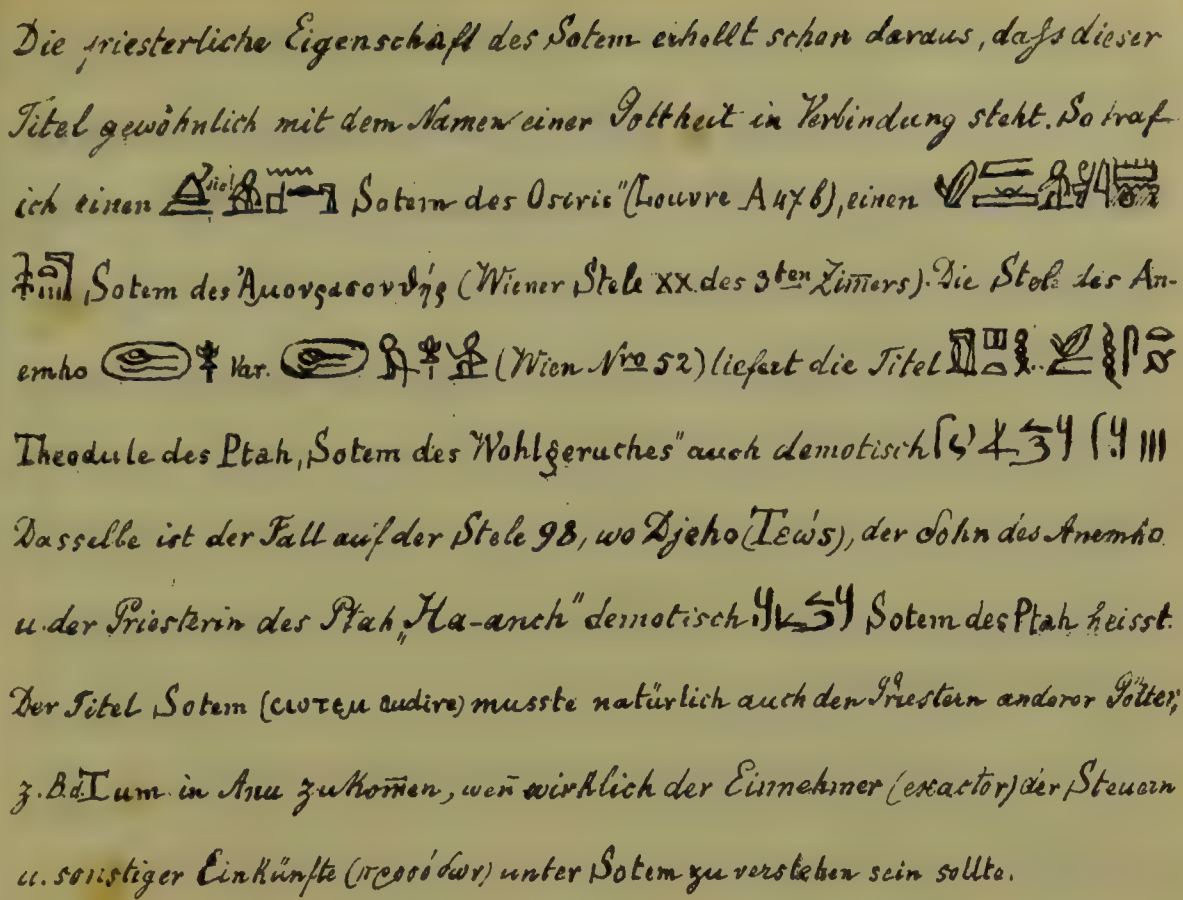 Die priesterliche Eigenschaft des Sotem erhellt schon daraus, daſs dieser
Titel gewöhnlich mit dem Namen einer Gottheit in Verbindung steht. So traf
ich einen Sotem des Osiris" (Louvre A 47 b), einen
Sotem des (Wiener Stele XX des 3ten Zim̄ers). Die Stele des An-
emho Var. (Wien Nro 52) liefert die Titel
Theodule des Ptah, Sotem des Wohlgeruches" auch demotisch
Dasselbe ist der Fall auf der Stele 98, wo Djeho (Τεώς), der Sohn des Anemho
u. der Priesterin des Ptah „Ha-anch" demotisch Sotem des Ptah heisst.
Der Titel Sotem (ⲥⲱⲧⲉⲙ audire) musste natürlich auch den Priestern anderer Götter,
z. B. d. Tum in Anu zukom̄en, wen̄ wirklich der Einnehmer (exactor) der Steuern
u. sonstiger Einkünfte (προσόδων) unter Sotem zu verstehen sein sollte.